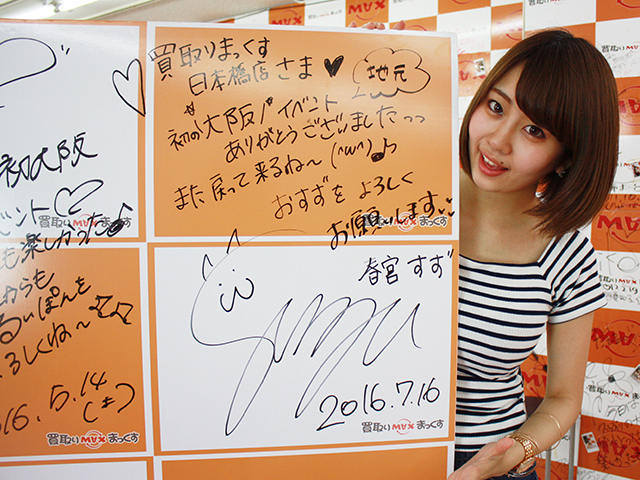 買取りまっくす
日本橋店さま♥
地元
初の大阪!イベント
ありがとうございましたっっ
また戻って来るね〜(^w^)♪
おすずを よろしく
お願いします
買取りMAXまっくす
春宮 すず
Suzu
2016.7.16
買取りMAXまっくす
初大阪
ベント♡
も楽しかった♪
買取りMAXまっくす
からも
るぃぽんを
ろしくね〜
16.5.14
買取りMAXまっくす
買取りMAXまっくす